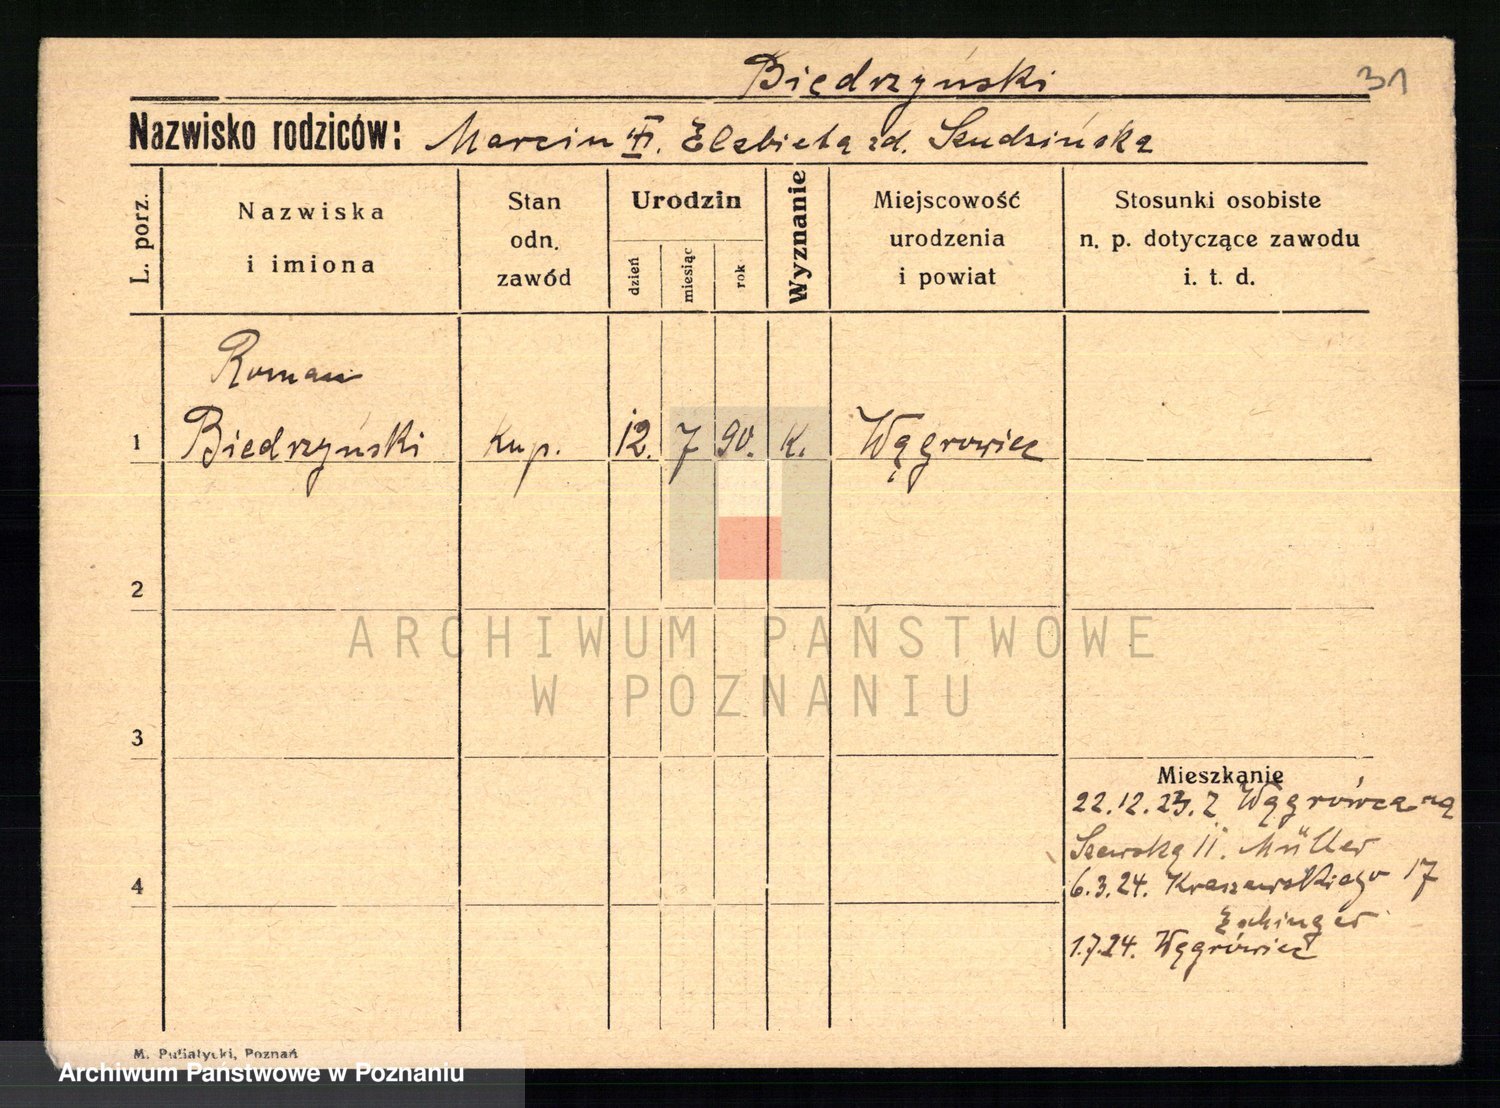 Biedrzyński 31
Nazwisko rodziców: Marcin i. Elzbieta zd. Szudzińska
L. porz.
Nazwiska
i imiona
Stan
odn.
zawód
Urodzin
dzień
miesiąc
rok
Wyznanie
Miejscowość
urodzenia
i powiat
Stosunki osobiste
n. p. dotyczące zawodu
i. t. d.
Roman
1 Biedrzyński kup. 12. 7 90. K. Wągrowiec
2
ARCHIWUM PAŃSTWOWE
W POZNANIU
3
Mieszkanie
22.12.23. Z Wągrówca na
Szewską 11. Müller
4
6.3.24. Kraszewskiego 17
1.7.24. Wągrówiec
M. Putiatycki, Poznań
Archiwum Państwowe w Poznaniu